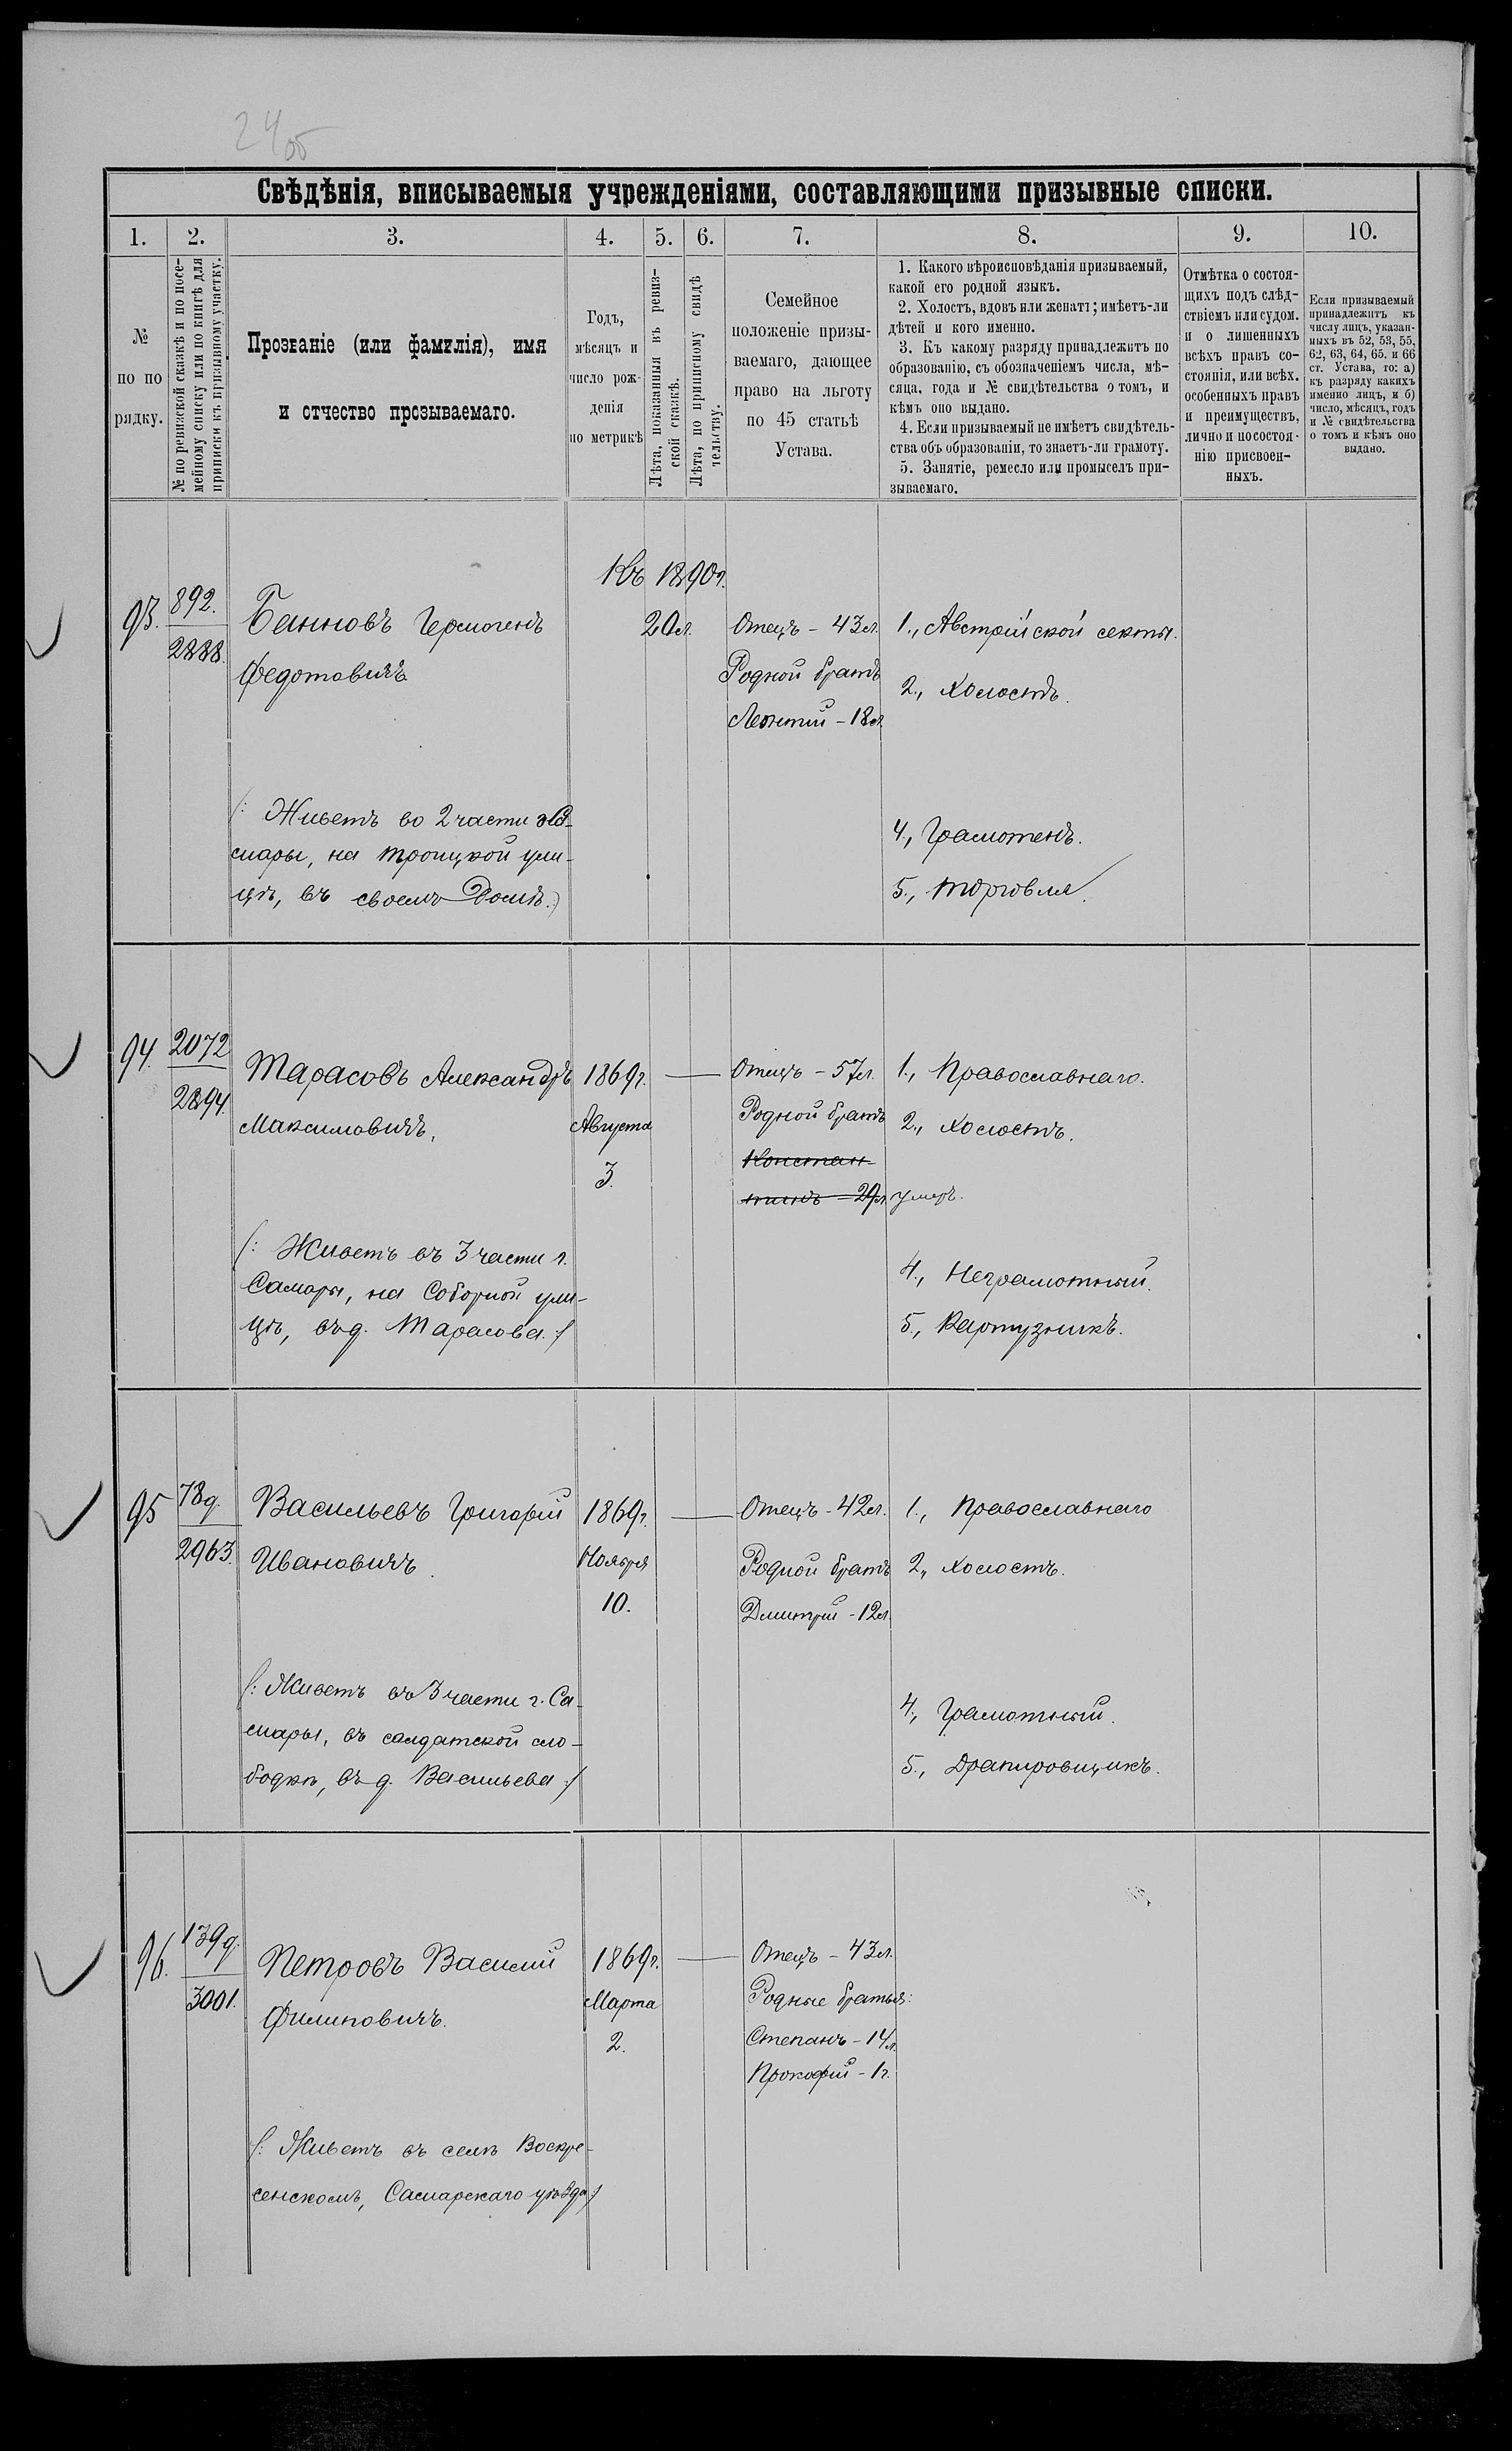 24об
Свѣдѣнія, вписываемыя учрежденіями, составляющими призывные списки.
1. 2. 3. 4. 5. 6. 7. 8. 9. 10.
№
по по
рядку.
№ по ревизской сказкѣ и по посе-
мейному списку или по книгѣ для
приписки къ призывному участку.
Прозваніе (или фамилія), имя
и отчество прозываемаго.
Годъ,
мѣсяцъ и
число рож-
денія
по метрикѣ
Лѣта, показанныя въ ревиз-
ской сказкѣ.
Лѣта, по приписному свидѣ
тельству.
Семейное
положеніе призы-
ваемаго, дающее
право на льготу
по 45 статьѣ
Устава.
1. Какого вѣроисповѣданія призываемый,
какой его родной языкъ.
2. Холостъ, вдовъ или женатъ; имѣетъ-ли
дѣтей и кого именно.
3. Къ какому разряду принадлежитъ по
образованію, съ обозначеніемъ числа, мѣ-
сяца, года и № свидѣтельства о томъ, и
кѣмъ оно выдано.
4. Если призываемый не имѣетъ свидѣтель-
ства объ образованіи, то знаетъ-ли грамоту.
5. Занятіе, ремесло или промыселъ при-
зываемаго.
Отмѣтка о состоя-
щихъ подъ слѣд-
ствіемъ или судом.
и о лишенныхъ
всѣхъ правъ со-
стоянія, или всѣх.
особенныхъ правъ
и преимуществъ,
лично и по состоя-
нію присвоен-
ныхъ.
Если призываемый
принадлежитъ къ
числу лицъ, указан-
ныхъ въ 52, 53, 55,
62, 63, 64, 65. и 66
ст. Устава, то: а)
къ разряду какихъ
именно лицъ, и б)
число, мѣсяцъ, годъ
и № свидѣтельства
о томъ и кѣмъ оно
выдано.
93.
892.
2888.
Банновъ Гермогенъ
Федотовичъ
(: Живетъ во 2 части г. Са-
мары, на Троицкой ули-
цѣ, въ своемъ домѣ.:)
Къ 1890 г.
20 л.
Отецъ - 43 л.
Родной братъ
Леонтій - 18 л.
1., Австрійской секты.
2., Холостъ.
4., Грамотенъ.
5., Торговля.
94.
2072
2894.
Тарасовъ Александръ
Максимовичъ,
(: Живетъ въ 3 части г.
Самары, на Соборной ули-
цѣ, въ д. Тарасова :)
1869 г.
Августа
3.
Отецъ - 57 л.
Родной братъ
Констан-
тинъ - 29 л. умеръ.
1., Православнаго.
2., Холостъ.
4., Неграмотный.
5., Картузникъ.
95
78 д.
2963.
Васильевъ Григорій
Ивановичъ.
(: Живетъ въ 3 части г. Са-
мары, въ солдатской сло-
бодкѣ, въ д. Васильева :)
1869 г.
Ноября
10.
Отецъ - 42 л.
Родной братъ
Дмитрій - 12 л.
1., Православнаго
2., Холостъ.
4., Грамотный.
5., Драпировщикъ.
96.
139 д.
3001.
Петровъ Василій
Филиповичъ.
(: Живетъ въ селѣ Воскре-
сенскомъ, Самарскаго уѣзда :)
1869 г.
Марта
2.
Отецъ - 43 л.
Родные братья:
Степанъ - 14 л.
Прокофій - 1 г.